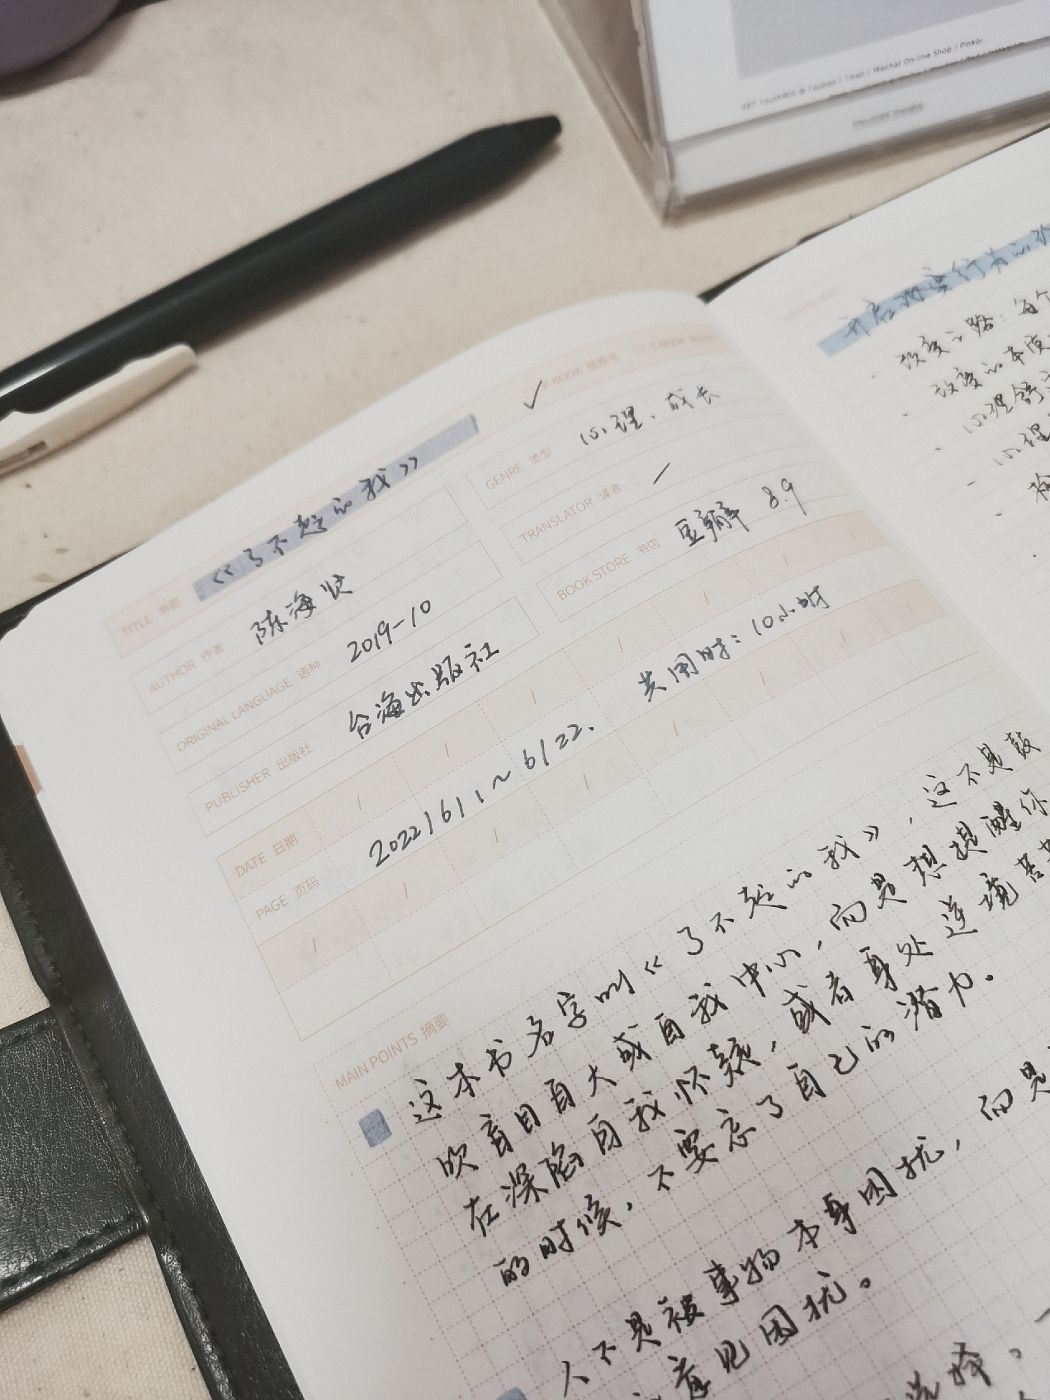 GET YouthWill @ Taobao / Tmall / Wechat On-line Shop / Pinkoi
BOOK
TITLE 书籍 《了不起的我》
GENRE 类型 心理、成长
AUTHOR 作者 陈海贤
TRANSLATOR 译者
ORIGINAL LANGUAGE 语种 2019-10
BOOK STORE 书店 豆瓣 8.9
PUBLISHER 出版社 台海出版社
DATE 日期
2022/6/1~6/22、 共用时：10小时
PAGE 页码
MAIN POINTS 摘要
这本书名字叫《了不起的我》，这不是鼓
吹盲目自大或自我中心，而是想提醒你
在深陷自我怀疑，或者身处逆境
的时候，不要忘了自己的潜力。
人不是被事物本身困扰，而是
意见困扰。
选择。
改变之路：每个
改变的本质
心理舒
心理